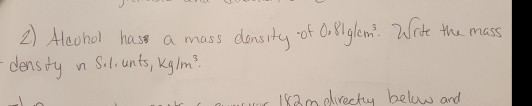 2) Alcohol hass a mass density of 0.81g/cm³. Write the mass
density in S.I. unts, kg/m³.
182m directly below and